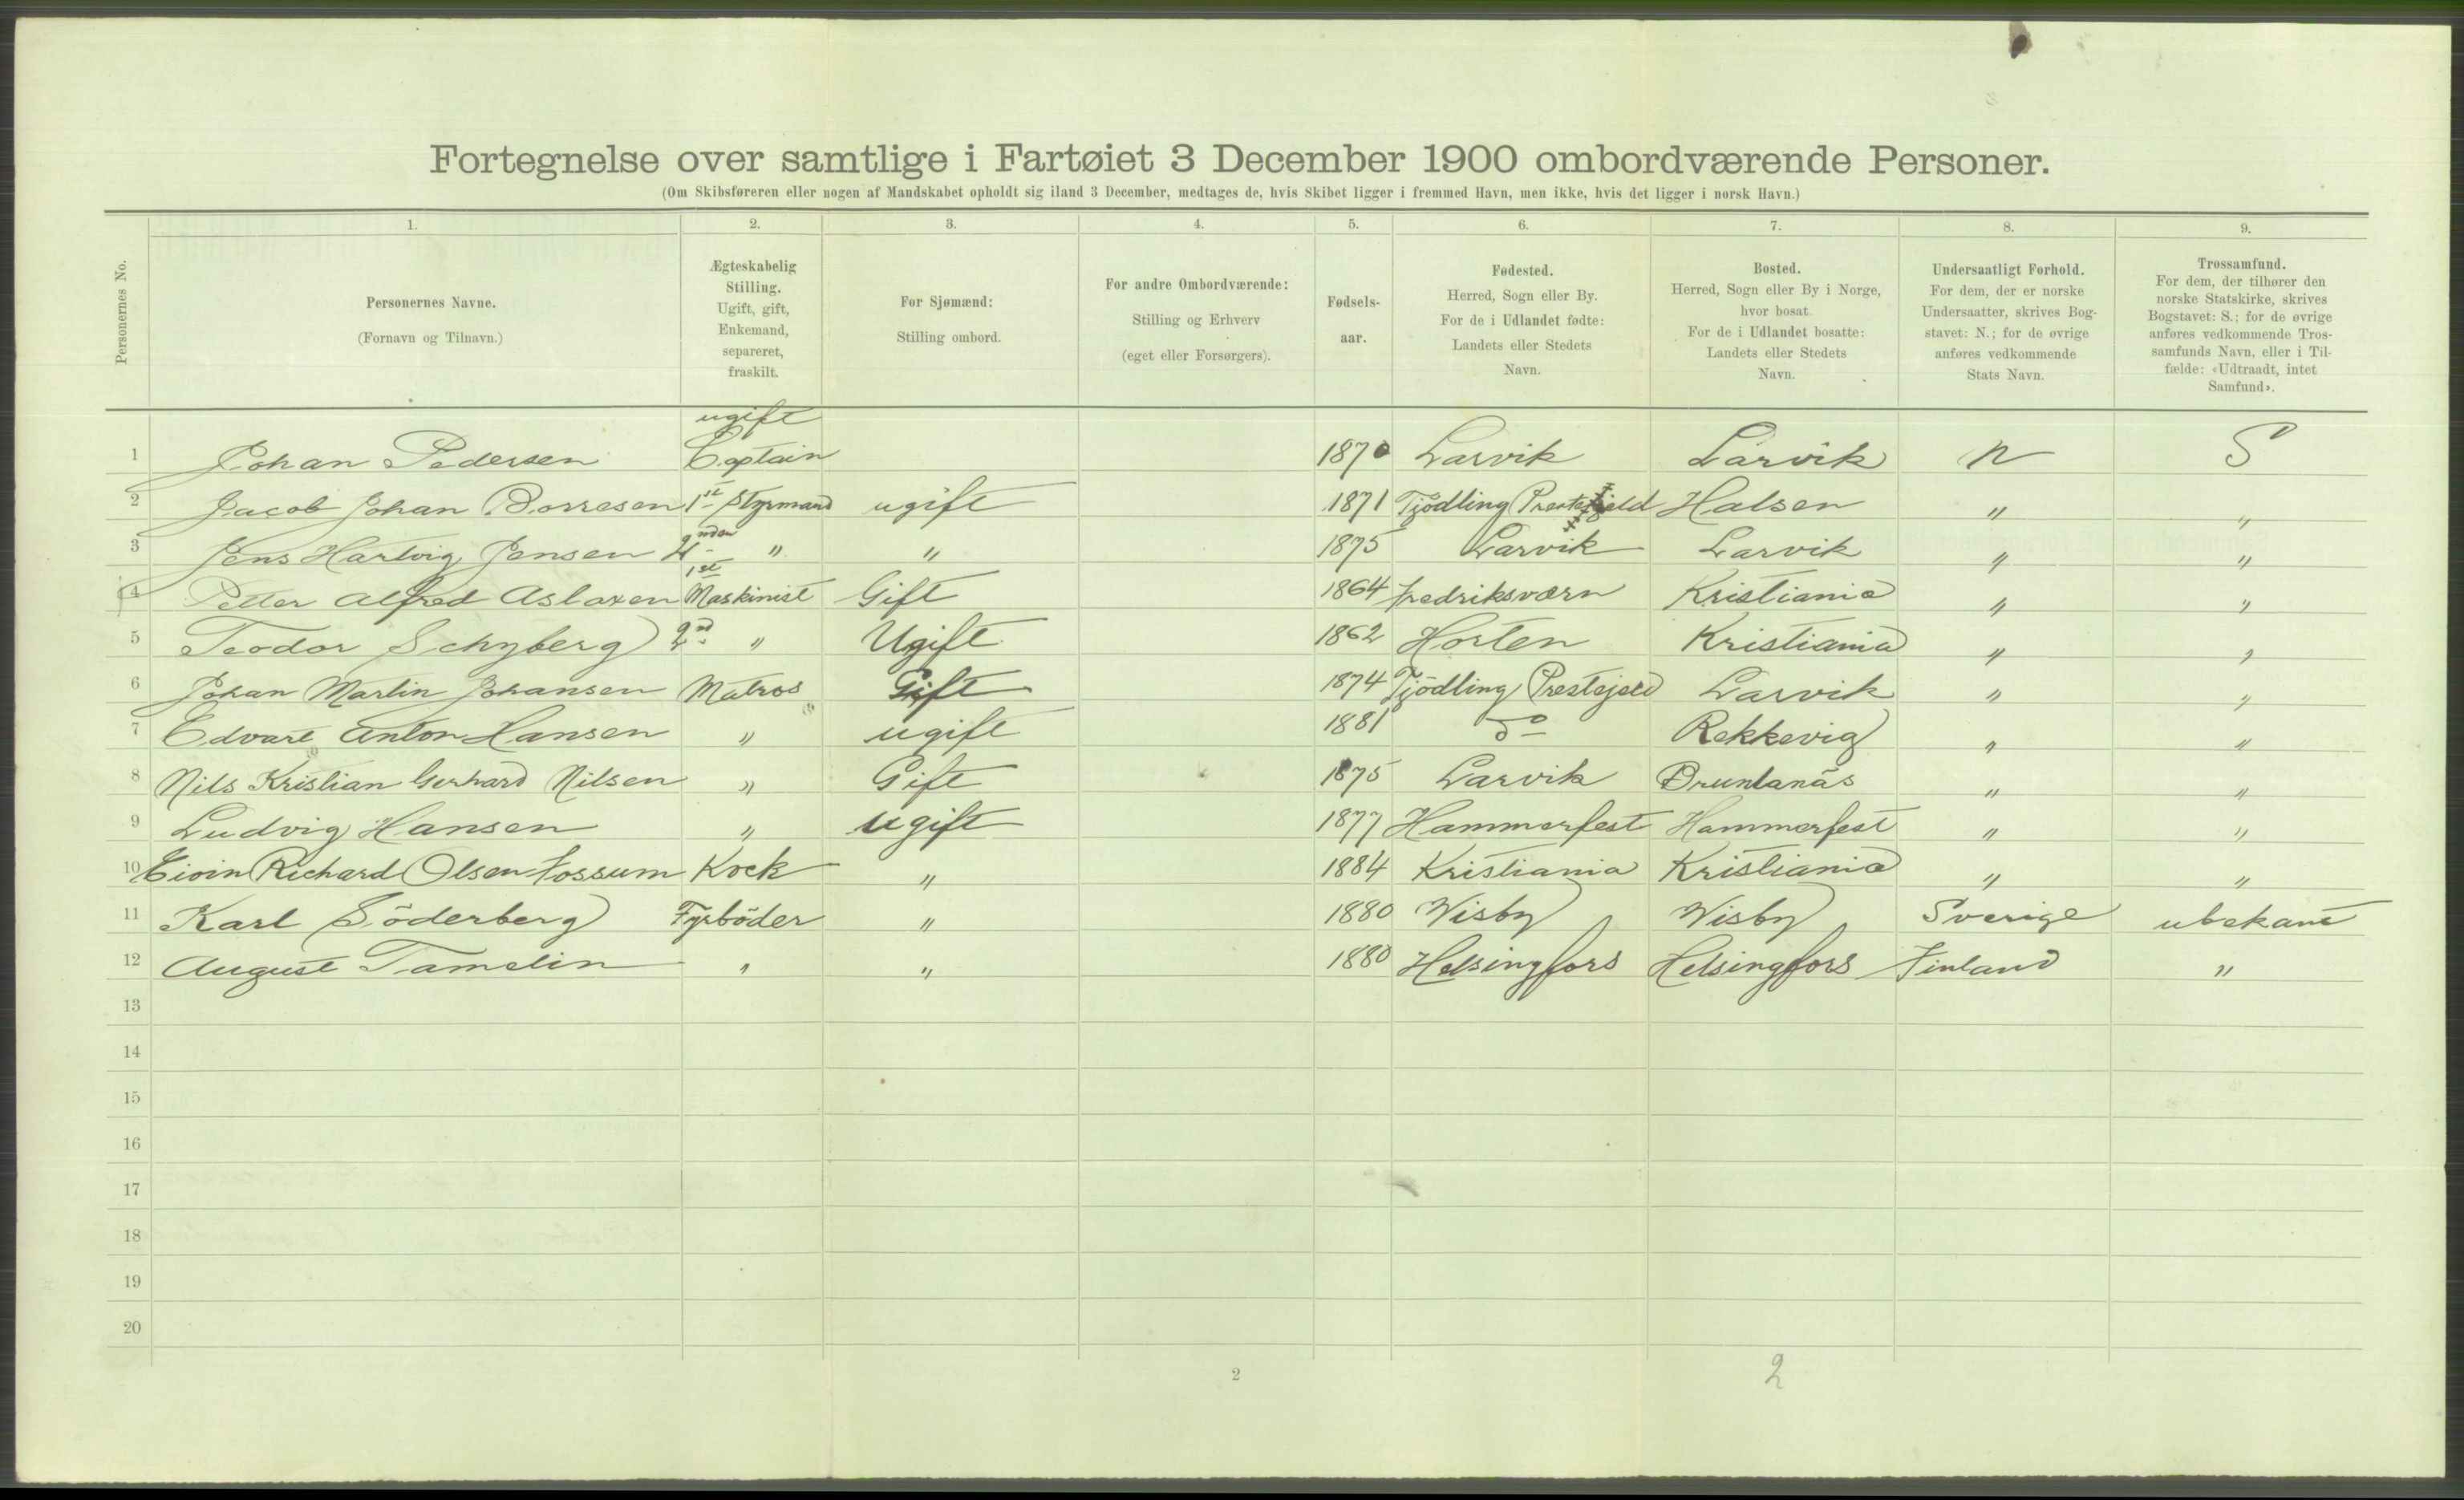 Fortegnelse over samtlige i Fartøiet 3 December 1900 ombordværende Personer.
(Om Skibsføreren eller nogen af Mandskabet opholdt sig iland 3 December, medtages de, hvis Skibet ligger i fremmed Havn, men ikke, hvis det ligger i norsk Havn.)
Personernes No.
1. 2. 3. 4. 5. 6. 7. 8. 9.
Personernes Navne.
(Fornavn og Tilnavn.)
Ægteskabelig
Stilling.
Ugift, gift,
Enkemand,
separeret,
fraskilt.
For Sjømænd:
Stilling ombord.
For andre Ombordværende:
Stilling og Erhverv
(eget eller Forsørgers).
Fødsels-
aar.
Fødested.
Herred, Sogn eller By.
For de i Udlandet fødte:
Landets eller Stedets
Navn.
Bosted.
Herred, Sogn eller By i Norge,
hvor bosat.
For de i Udlandet bosatte:
Landets eller Stedets
Navn.
Undersaatligt Forhold.
For dem, der er norske
Undersaatter, skrives Bog-
stavet: N.; for de øvrige
anføres vedkommende
Stats Navn.
Trossamfund.
For dem, der tilhører den
norske Statskirke, skrives
Bogstavet: S.; for de øvrige
anføres vedkommende Tros-
samfunds Navn, eller i Til-
fælde: «Udtraadt, intet
Samfund».
ugift
1 Johan Pedersen Captain 1870 Larvik Larvik N S
2 Jacob Johan Borresen 1st Styrmand ugift 1871 Tjödling Prestejeld Halsen " "
3 Jens Hartvig Jensen 2nden " " 1875 Larvik Larvik " "
1st
4 Petter Alfred Aslaxen Maskinist Gift 1864 Fredriksværn Kristiania " "
5 Teodor Schyberg 2nd " Ugift 1862 Horten Kristiania " "
6 Johan Martin Johansen Matros Gift 1874 Tjödling Prestejeld Larvik " "
7 Edvart Anton Hansen " ugift 1881 do Rekkevig " "
8 Nils Kristian Gerhard Nilsen " Gift 1875 Larvik Brunlanäs " "
9 Ludvig Hansen " ugift 1877 Hammerfest Hammerfest " "
10 Eivin Richard Olsen Fossum Kock " 1884 Kristiania Kristiania " "
11 Karl Söderberg Fyrböder " 1880 Wisby Wisby Sverige ubekant
12 August Tamelin " " 1880 Helsingfors Helsingfors Finland "
13
14
15
16
17
18
19
20
2 2